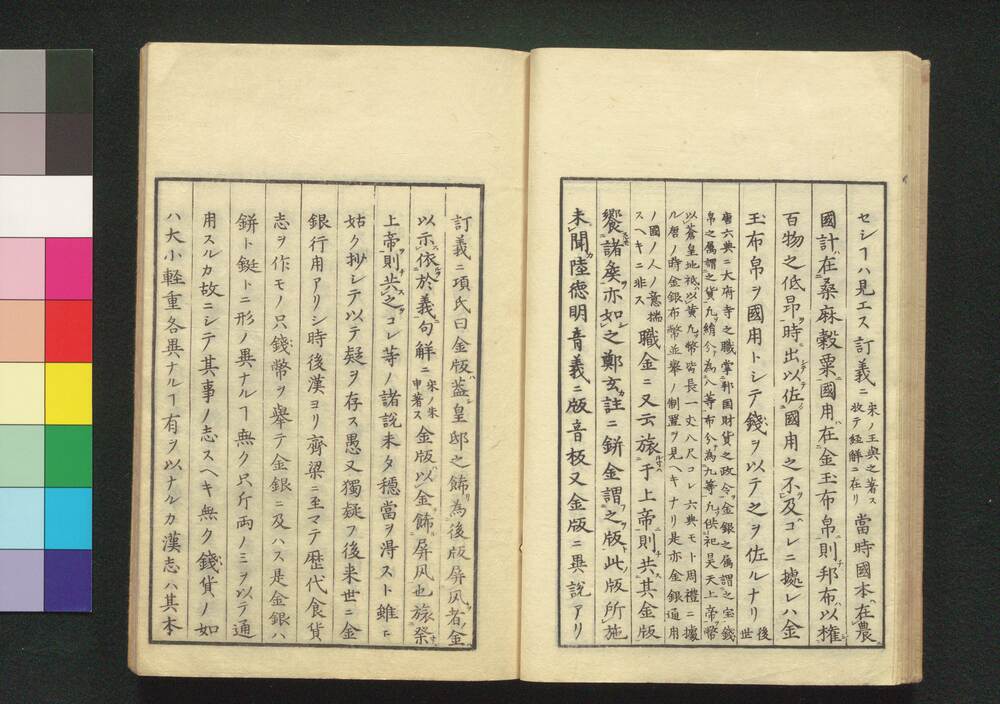 セシヿハ見エス訂義ニ宋ノ王與之著ス故テ経解ニ在リ當時國本在農
國計在桑麻穀粟國用在金玉布帛則邦布以権
百物之低昂時出以佐國用之不及コレニ據レハ金
玉布帛ヲ國用トシテ錢ヲ以テ之ヲ佐ルナリ後世
唐六典ニ大府寺之職掌邦国財貨之政令金銀之属謂之宝錢
帛之属謂之貨九絹今為八等布今為九等九供祀昊天上帝幣
以蒼皇地祇以黄九幣皆長一丈八尺コレ六典モト周禮ニ據
ル唐ノ時金銀布幣並舉ノ制置ヲ見ヘキナリ是亦金銀通用
ノ國ノ人ノ意揣
スヘキニ非ス職金ニ又云旅于上帝則共其金版
饗諸矦亦如之鄭玄註ニ鉼金謂之版此版所施
未聞陸徳明音義ニ版音板又金版ニ異說アリ
訂義ニ項氏曰金版葢皇邸之飾為後版屏风者金
以示依於義句解ニ宋ノ朱申著ス金版以金飾屏风也旅祭
上帝則共之コレ等ノ諸說未タ穏當ヲ淂スト雖ㇷ
姑ク抄シテ以テ疑ヲ存ス愚又獨疑フ後来世ニ金
銀行用アリシ時後漢ヨリ齊梁ニ至マテ歴代食貨
志ヲ作モノ只錢幣ヲ舉テ金銀ニ及ハス是金銀ハ
鉼ト鋌トニ形ノ異ナルヿ無ク只斤両ノミヲ以テ通
用スルカ故ニシテ其事ノ志スヘキ無ク錢貨ノ如
ハ大小軽重各異ナルヿ有ヲ以ナルカ漢志ハ其本